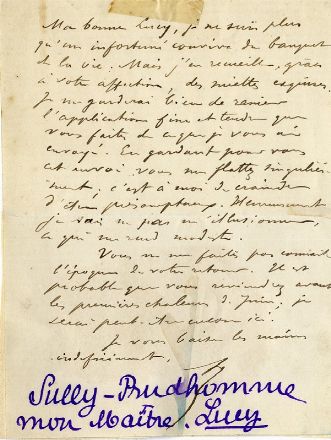 Ma bonne Lucy, je ne suis plus
qu'un infortuné convive du banquet
de la vie. Mais j'en recueille, grâce
à votre affection, des miettes exquises.
Je me garderai bien de renier
l'application fine et tendre que
vous faites de ce que je vous ai
envoyé. En gardant pour vous
cet envoi, vous me flattez singulière-
ment; c'est à moi de craindre
d'être présomptueux. Heureusement
je sais ne pas m'illusionner,
ce qui me rend modeste.
Vous ne me faites pas connaître
l'époque de votre retour. Il est
probable que vous reviendrez avant
les premières chaleurs de Juin; je
serai peut-être encore ici.
Je vous baise les mains
indéfiniment.
Sully-Prudhomme
mon Maître. Lucy